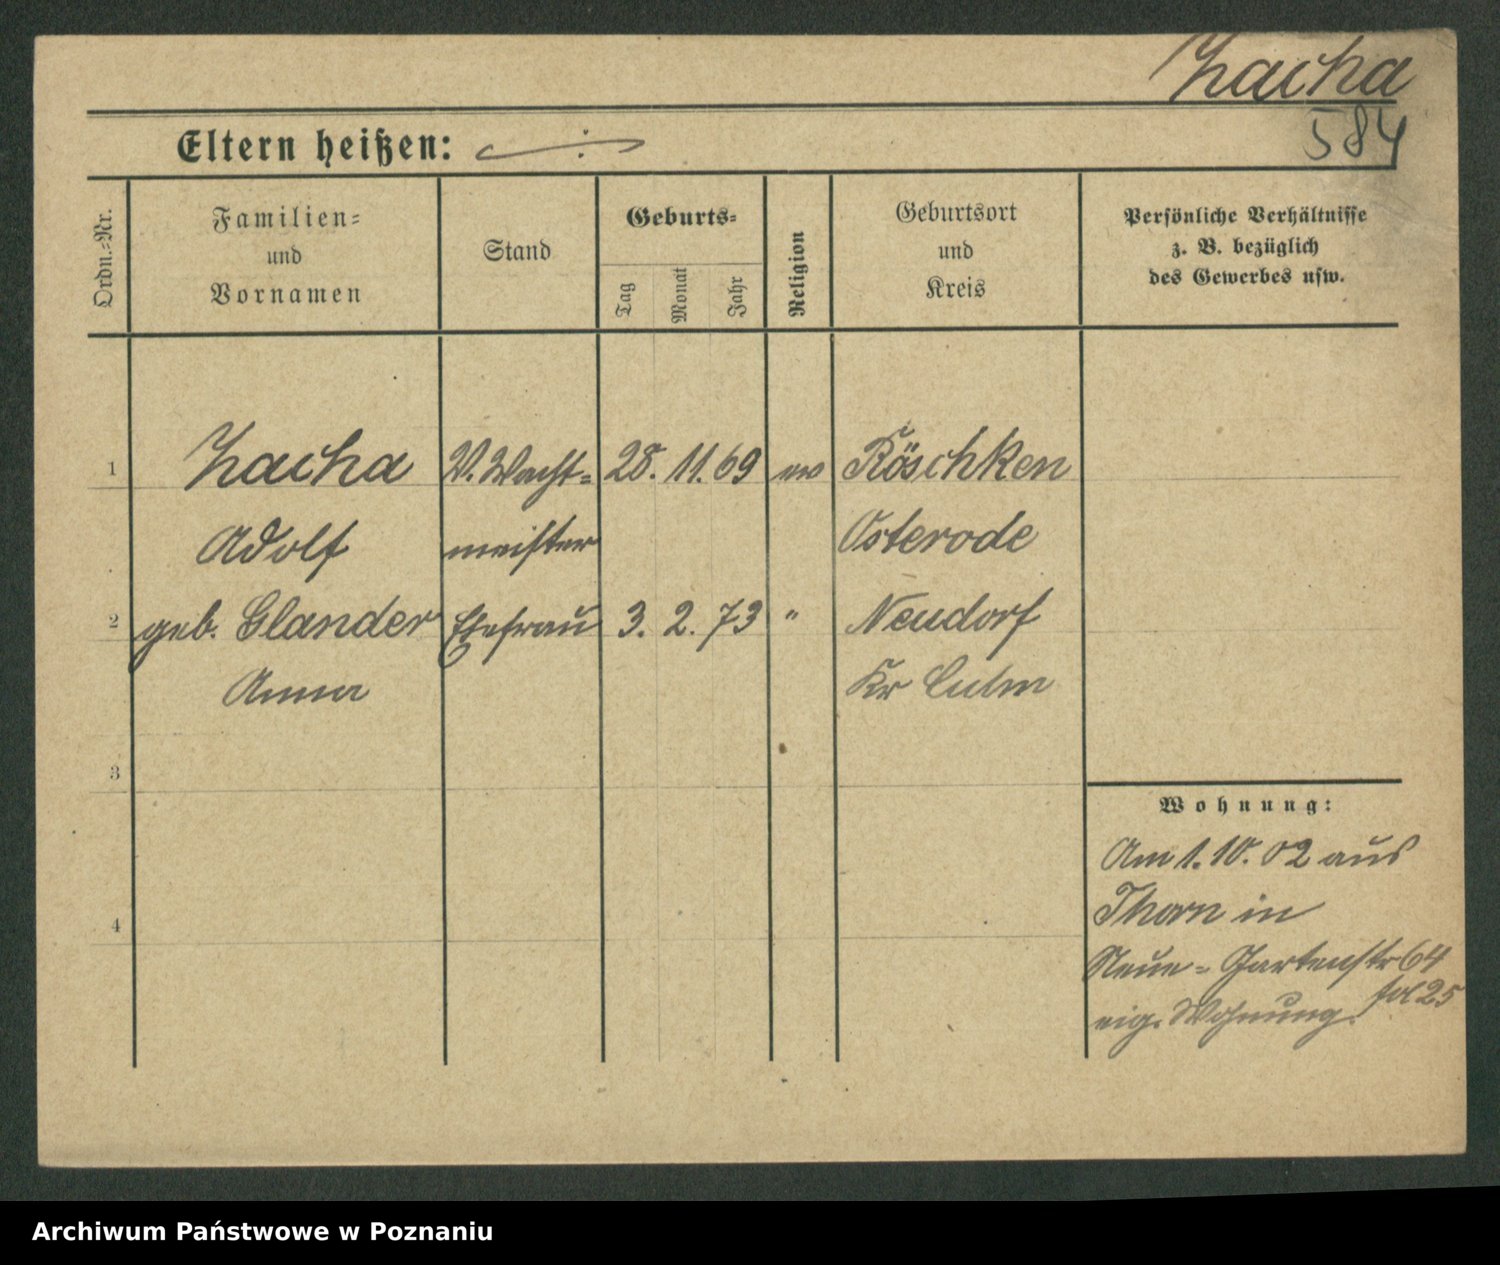 Zacha
584
Eltern heißen:
Ordn.-Nr.
Familien-
und
Vornamen
Stand
Geburts-
Tag
Monat
Jahr
Religion
Geburtsort
und
Kreis
Persönliche Verhältnisse
z. B. bezüglich
des Gewerbes usw.
1 Zacha V. Wacht- 28. 11. 69 ev Röschken
Adolf meister Osterode
2 geb. Glander Ehefrau 3. 2. 73 " Neudorf
Anna Kr Culm
3
4
Wohnung:
Am 1. 10. 02 aus
Thorn in
Neue-Gartenstr 64
25
eig. Wohnung.
Archiwum Państwowe w Poznaniu